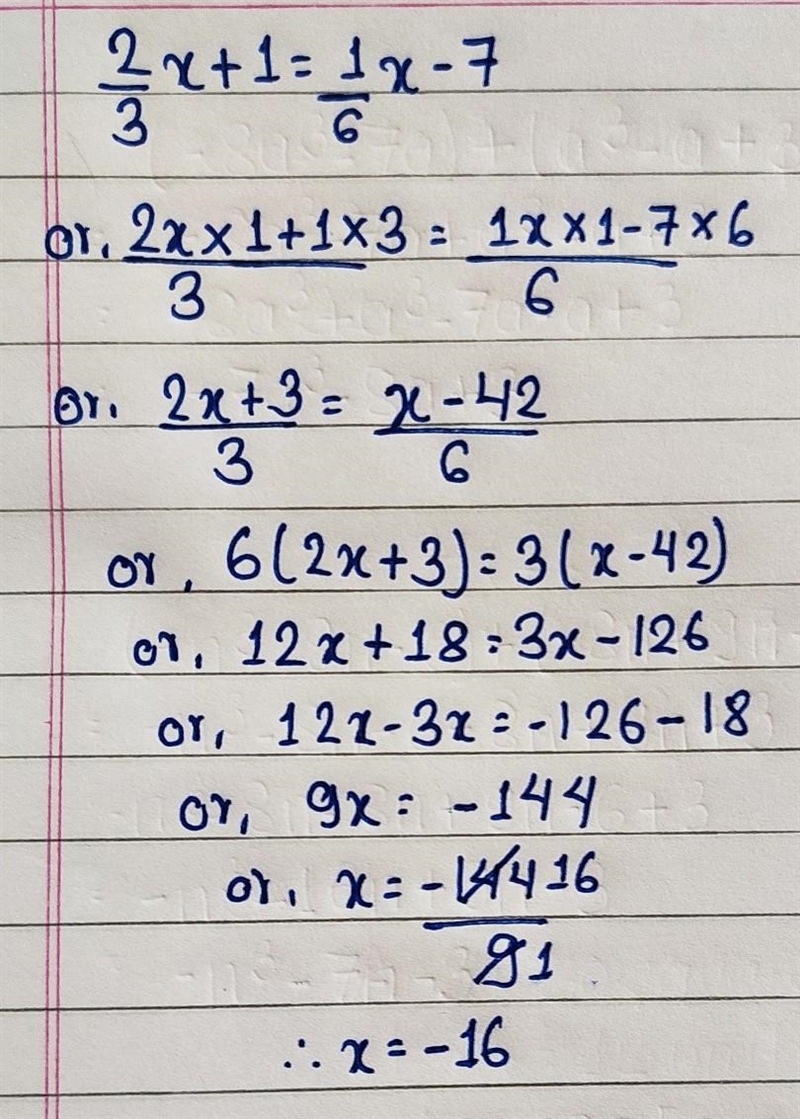 2/3 x + 1 = 1/6 x - 7
or, (2x × 1 + 1 × 3)/3 = (1x × 1 - 7 × 6)/6
or, (2x + 3)/3 = (x - 42)/6
or, 6(2x + 3) = 3(x - 42)
or, 12x + 18 = 3x - 126
or, 12x - 3x = -126 - 18
or, 9x = -144
or, x = -144 16/9 1
∴ x = -16